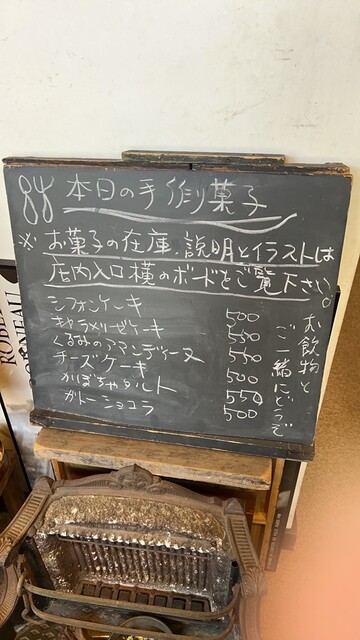 本日の手作り菓子
※ お菓子の在庫、説明とイラストは
店内入口横のボードをご覧下さい。
シフォンケーキ 500
キャラメリーゼケーキ 550
くるみのアマンディーヌ 500
チーズケーキ 500
かぼちゃタルト 550
ガトーショコラ 500
お飲物と
ご一緒にどうぞ